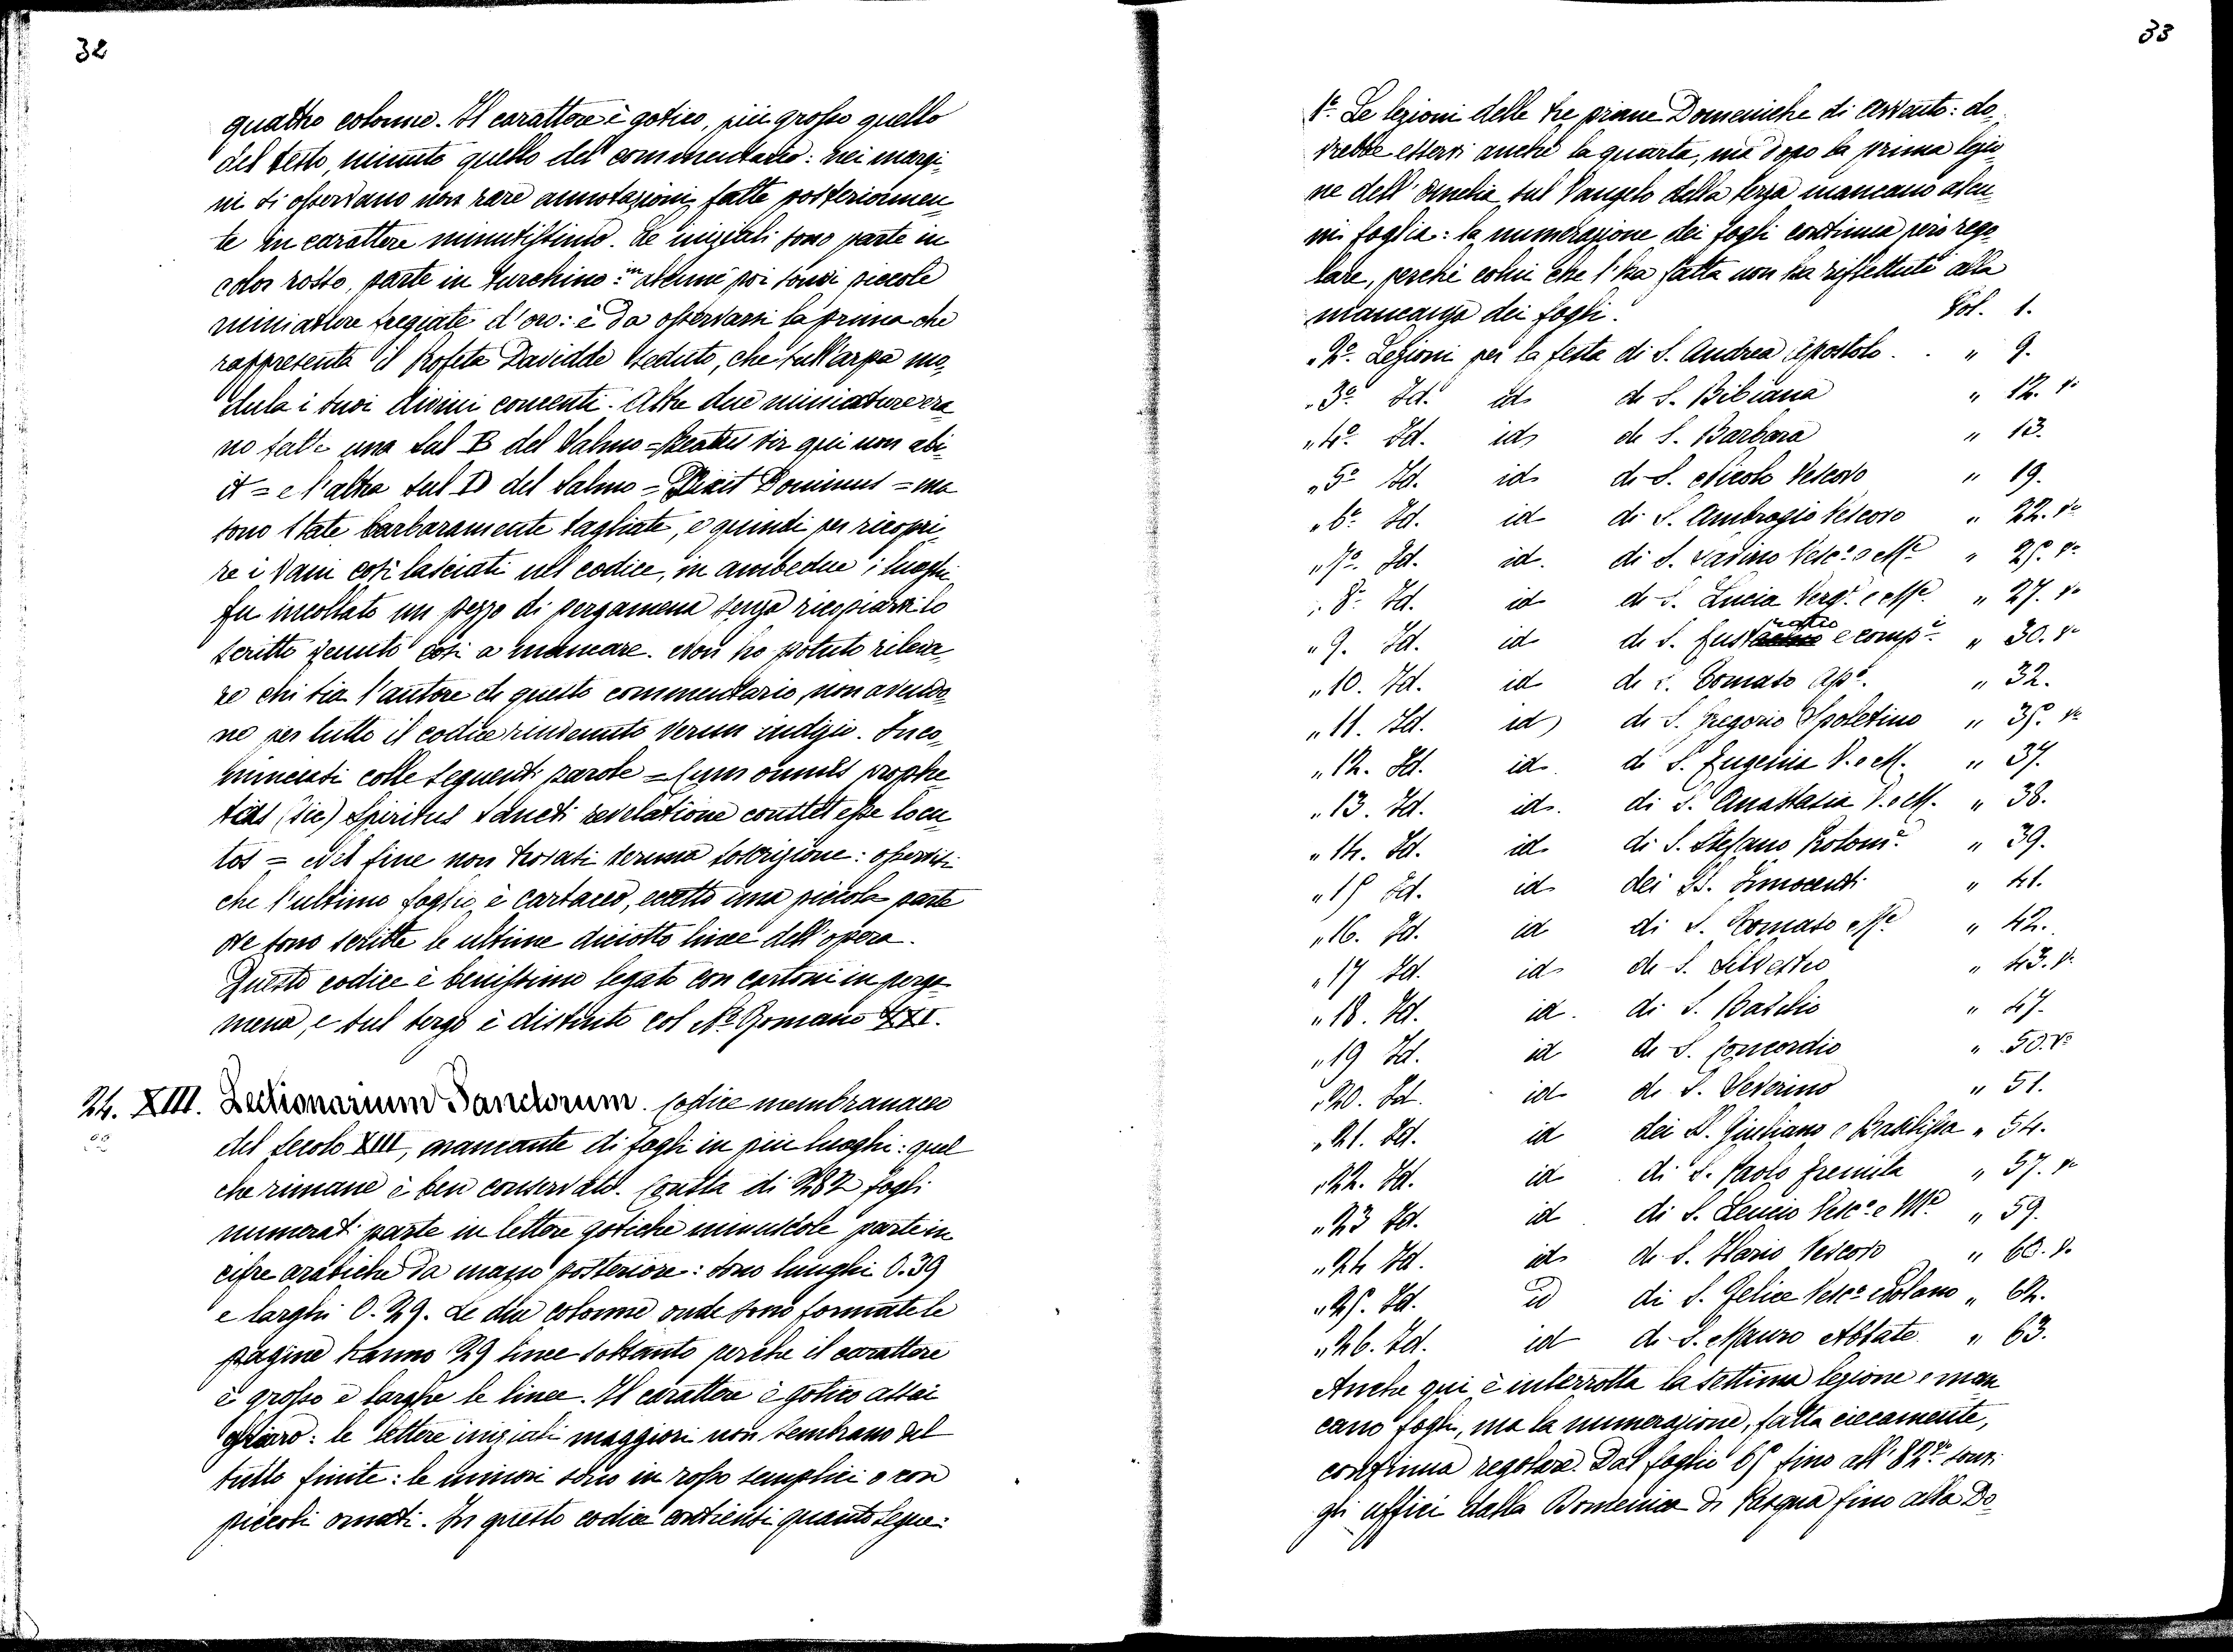 32
quattro colonne. Il carattere è gotico, più grosso quello
del testo, minuto quello del commentario: nei margi-
ni si osservano non rare annotazioni fatte posteriormen-
te in carattere minutissimo. Le iniziali sono parte in
color rosso, parte in turchino: in alcune poi sonvi piccole
miniature fregiate d'oro: è da osservarsi la prima che
rappresenta il Profeta Davidde seduto, che sull'arpa mo-
dula i suoi divini concenti. Altre due miniature era
no fatte una sul B del Salmo = Beatus vir qui non abi-
it = e l'altra sul D del Salmo = Dixit Dominus = ma
sono state barbaramente tagliate, e quindi per ricopri-
re i vani così lasciati nel codice, in ambedue i luoghi
fu incollato un pezzo di pergamena senza ricopiarvi lo
scritto venuto così a mancare. Non ho potuto rileva-
re chi sia l'autore di questo commentario, non avendo-
ne per tutto il codice rinvenuto verun indizio. Inco-
minciasi colle seguenti parole = Cum omnes prophe
tias (sic) Spiritus Sancti revelatione constet esse locu
tos = Nel fine non trovasi veruna soscrizione: osservisi
che l'ultimo foglio è cartaceo, eccetto una piccola parte
ove sono scritte le ultime diciotto linee dell'opera.
Questo codice è benissimo legato con cartoni in perga-
mena, e sul tergo è distinto col No Romano XXI.
24. XIII. Lectionarium Sanctorum. Codice membranaceo
del Secolo XIII, mancante di fogli in più luoghi: quel
che rimane è ben conservato. Consta di 282 fogli
numerati parte in lettere gotiche minuscole parte in
cifre arabiche da mano posteriore: sono lunghi 0.39
e larghi 0.29. Le due colonne onde sono formate le
pagine hanno 29 linee soltanto perchè il carattere
è grosso e larghe le linee. Il carattere è gotico assai
chiaro: le lettere iniziali maggiori non sembrano del
tutto finite: le minori sono in rosso semplici o con
piccoli ornati. In questo codice contiensi quanto segue:
33
1o Le lezioni delle tre prime Domeniche di Avvento: do-
vrebbe esservi anche la quarta, ma dopo la prima lezio
ne dell'Omelia sul Vangelo della terza mancano alcu-
ni foglia: la numerazione dei fogli continua però rego
lare, perchè colui che l'ha fatta non ha riflettuto alla
mancanza dei fogli. Fol. 1.
" 2o Lezioni per la festa di S. Andrea Apostolo. . " 9.
" 3o Id. id. di S. Bibiana " 12. vo
" 4o Id. id. di S. Barbara " 13.
" 5o Id. id. di S. Nicolo Vescovo " 19.
" 6o Id. id di S. Ambrogio Vescovo " 22. vo
" 7o Id. id. di S. Savino Vesco e Me " 25. vo
" 8o Id. id di S. Lucia Verge e Me " 27. vo
" 9. Id. id di S. Eustratio e compi " 30. vo
" 10. Id. id di S. Tomaso Apo. " 32.
" 11. Id. id di S. Gregorio Spoletino " 35. vo
" 12. Id. id. di S. Eugenia V. e M. " 37.
" 13. Id. id. di S. Anastasia V. e M. " 38.
" 14. Id. id. di S. Stefano Protome " 39.
" 15 Id. id. dei SS. Innocenti " 41.
" 16. Id. id di S. Tomaso Me " 42.
" 17 Id. id. di S. Silvestro " 43. vo
" 18. Id. id. di S. Basilio " 47.
" 19 Id. id di S. Concordio " 50. vo
" 20. Id. id. di S. Severino " 51.
" 21. Id. id dei SS. Giuliano e Basilissa " 54.
" 22. Id. id di S. Paolo Eremita " 57. vo
" 23 Id. id di S. Leucio Vesco e Me " 59.
" 24 Id. id. di S. Ilario Vescovo " 60. vo
" 25. Id. id di S. Felice Vesco Nolano " 62.
" 26. Id. id di S. Mauro Abbate " 63.
Anche qui è interrotta la settima lezione e man
cano fogli, ma la numerazione, fatta ciecamente,
continua regolare. Dal foglio 65 fino all'82vo sonvi
gli uffici dalla Domenica di Pasqua fino alla Do-